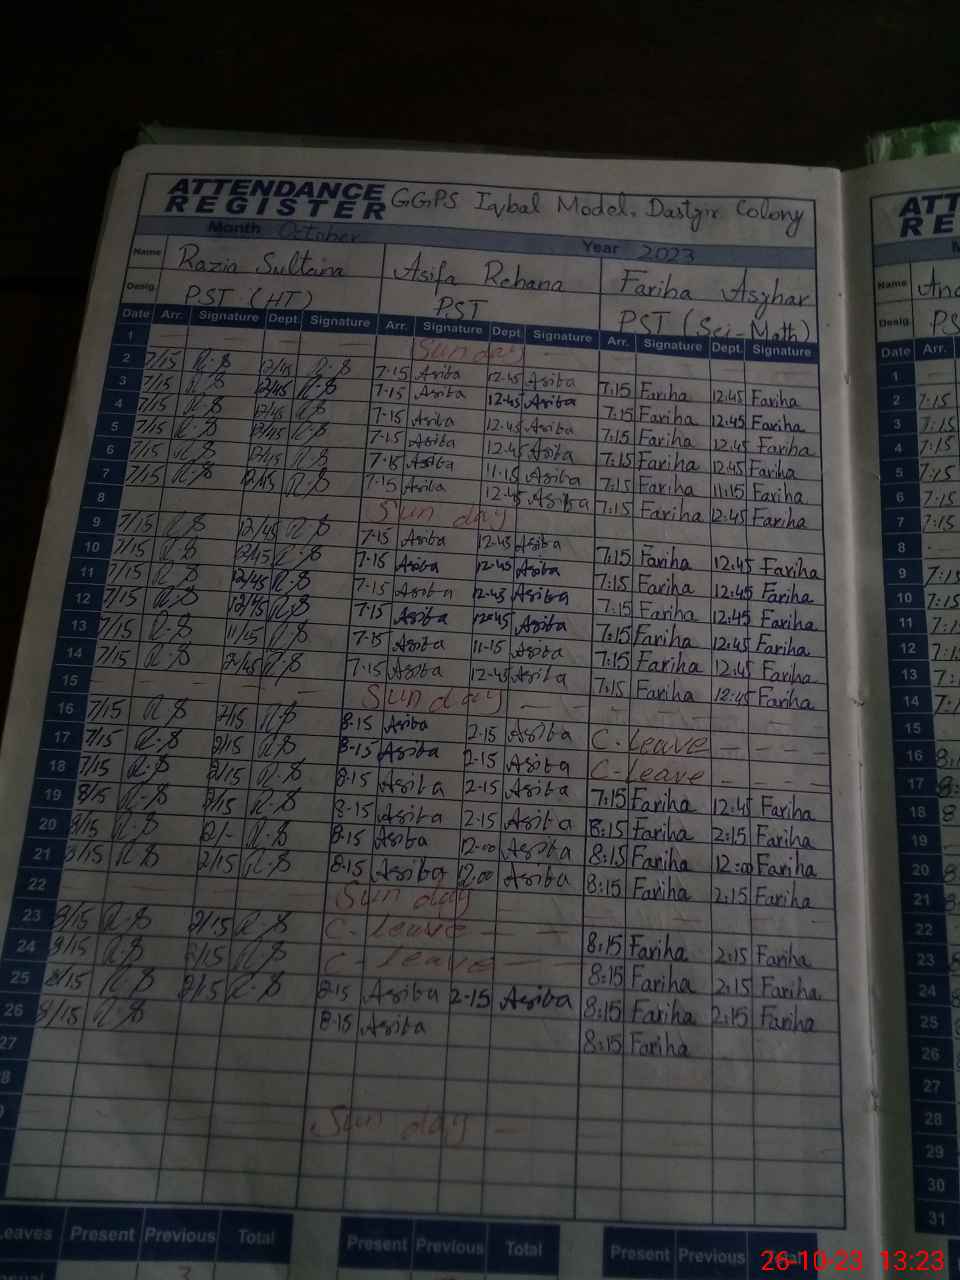 ATTENDANCE REGISTER GGPS Iqbal Model, Dastgir Colony
Month October Year 2023
Name Razia Sultana Asifa Rehana Fariha Asghar
Desig. PST (HT) PST PST (Sci-Math)
Date Arr. Signature Dept. Signature Arr. Signature Dept. Signature Arr. Signature Dept. Signature
1 Sunday
2 7/15 R.S 12/45 R.S 7-15 Asifa 12-45 Asifa 7:15 Fariha 12:45 Fariha
3 7/15 R.S 12/45 R.S 7-15 Asifa 12-45 Asifa 7:15 Fariha 12:45 Fariha
4 7/15 R.S 12/45 R.S 7-15 Asifa 12-45 Asifa 7:15 Fariha 12:45 Fariha
5 7/15 R.S 12/45 R.S 7-15 Asifa 12-45 Asifa 7:15 Fariha 12:45 Fariha
6 7/15 R.S R.S 7-15 Asifa 11-15 Asifa 7:15 Fariha 11:15 Fariha
7 7/15 R.S 12/45 R.S 7-15 Asifa 12-45 Asifa 7:15 Fariha 12:45 Fariha
8 Sunday
9 7/15 R.S 12/45 R.S 7-15 Asifa 12-45 Asifa 7:15 Fariha 12:45 Fariha
10 7/15 R.S 12/45 R.S 7-15 Asifa 12-45 Asifa 7:15 Fariha 12:45 Fariha
11 7/15 R.S 12/45 R.S 7-15 Asifa 12-45 Asifa 7:15 Fariha 12:45 Fariha
12 7/15 R.S 12/45 R.S 7-15 Asifa 12-45 Asifa 7:15 Fariha 12:45 Fariha
13 7/15 R.S 11/15 R.S 7-15 Asifa 11-15 Asifa 7:15 Fariha 12:45 Fariha
14 7/15 R.S 12/45 R.S 7-15 Asifa 12-45 Asifa 7:15 Fariha 12:45 Fariha
15 Sunday
16 7/15 R.S R.S 8-15 Asifa 2-15 Asifa C-leave
17 7/15 R.S 2/15 R.S 8-15 Asifa 2-15 Asifa C-leave
18 7/15 R.S 2/15 R.S 8-15 Asifa 2-15 Asifa 7:15 Fariha 12:45 Fariha
19 8/15 R.S 2/15 R.S 8-15 Asifa 2-15 Asifa 8:15 Fariha 2:15 Fariha
20 8/15 R.S R.S 8-15 Asifa 12-00 Asifa 8:15 Fariha 12:00 Fariha
21 8/15 R.S 2/15 R.S 8-15 Asifa Asifa 8:15 Fariha 2:15 Fariha
22 Sunday
23 8/15 R.S 2/15 R.S C-leave 8:15 Fariha 2:15 Fariha
24 8/15 R.S 2/15 R.S C-leave 8:15 Fariha 2:15 Fariha
25 8/15 R.S 2/15 R.S 8-15 Asifa 2-15 Asifa 8:15 Fariha 2:15 Fariha
26 8/15 R.S 8-15 Asifa 8:15 Fariha
27
Sunday
Leaves Present Previous Total Present Previous Total Present Previous
3
Name
Desig.
Date Arr.
1
2 7:15
3 7:15
4 7:15
5 7:15
6 7:15
7 7:15
8
9 7:15
10 7:15
11
12
13
14
15
16
17
18
19
20
21
22
23
24
25
26
27
28
29
30
31
26-10-23 13:23